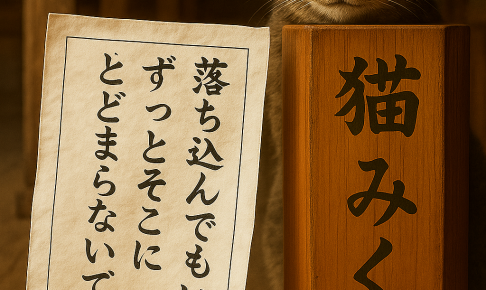 猫みく
落ち込んでも
ずっとそこに
とどまらないで